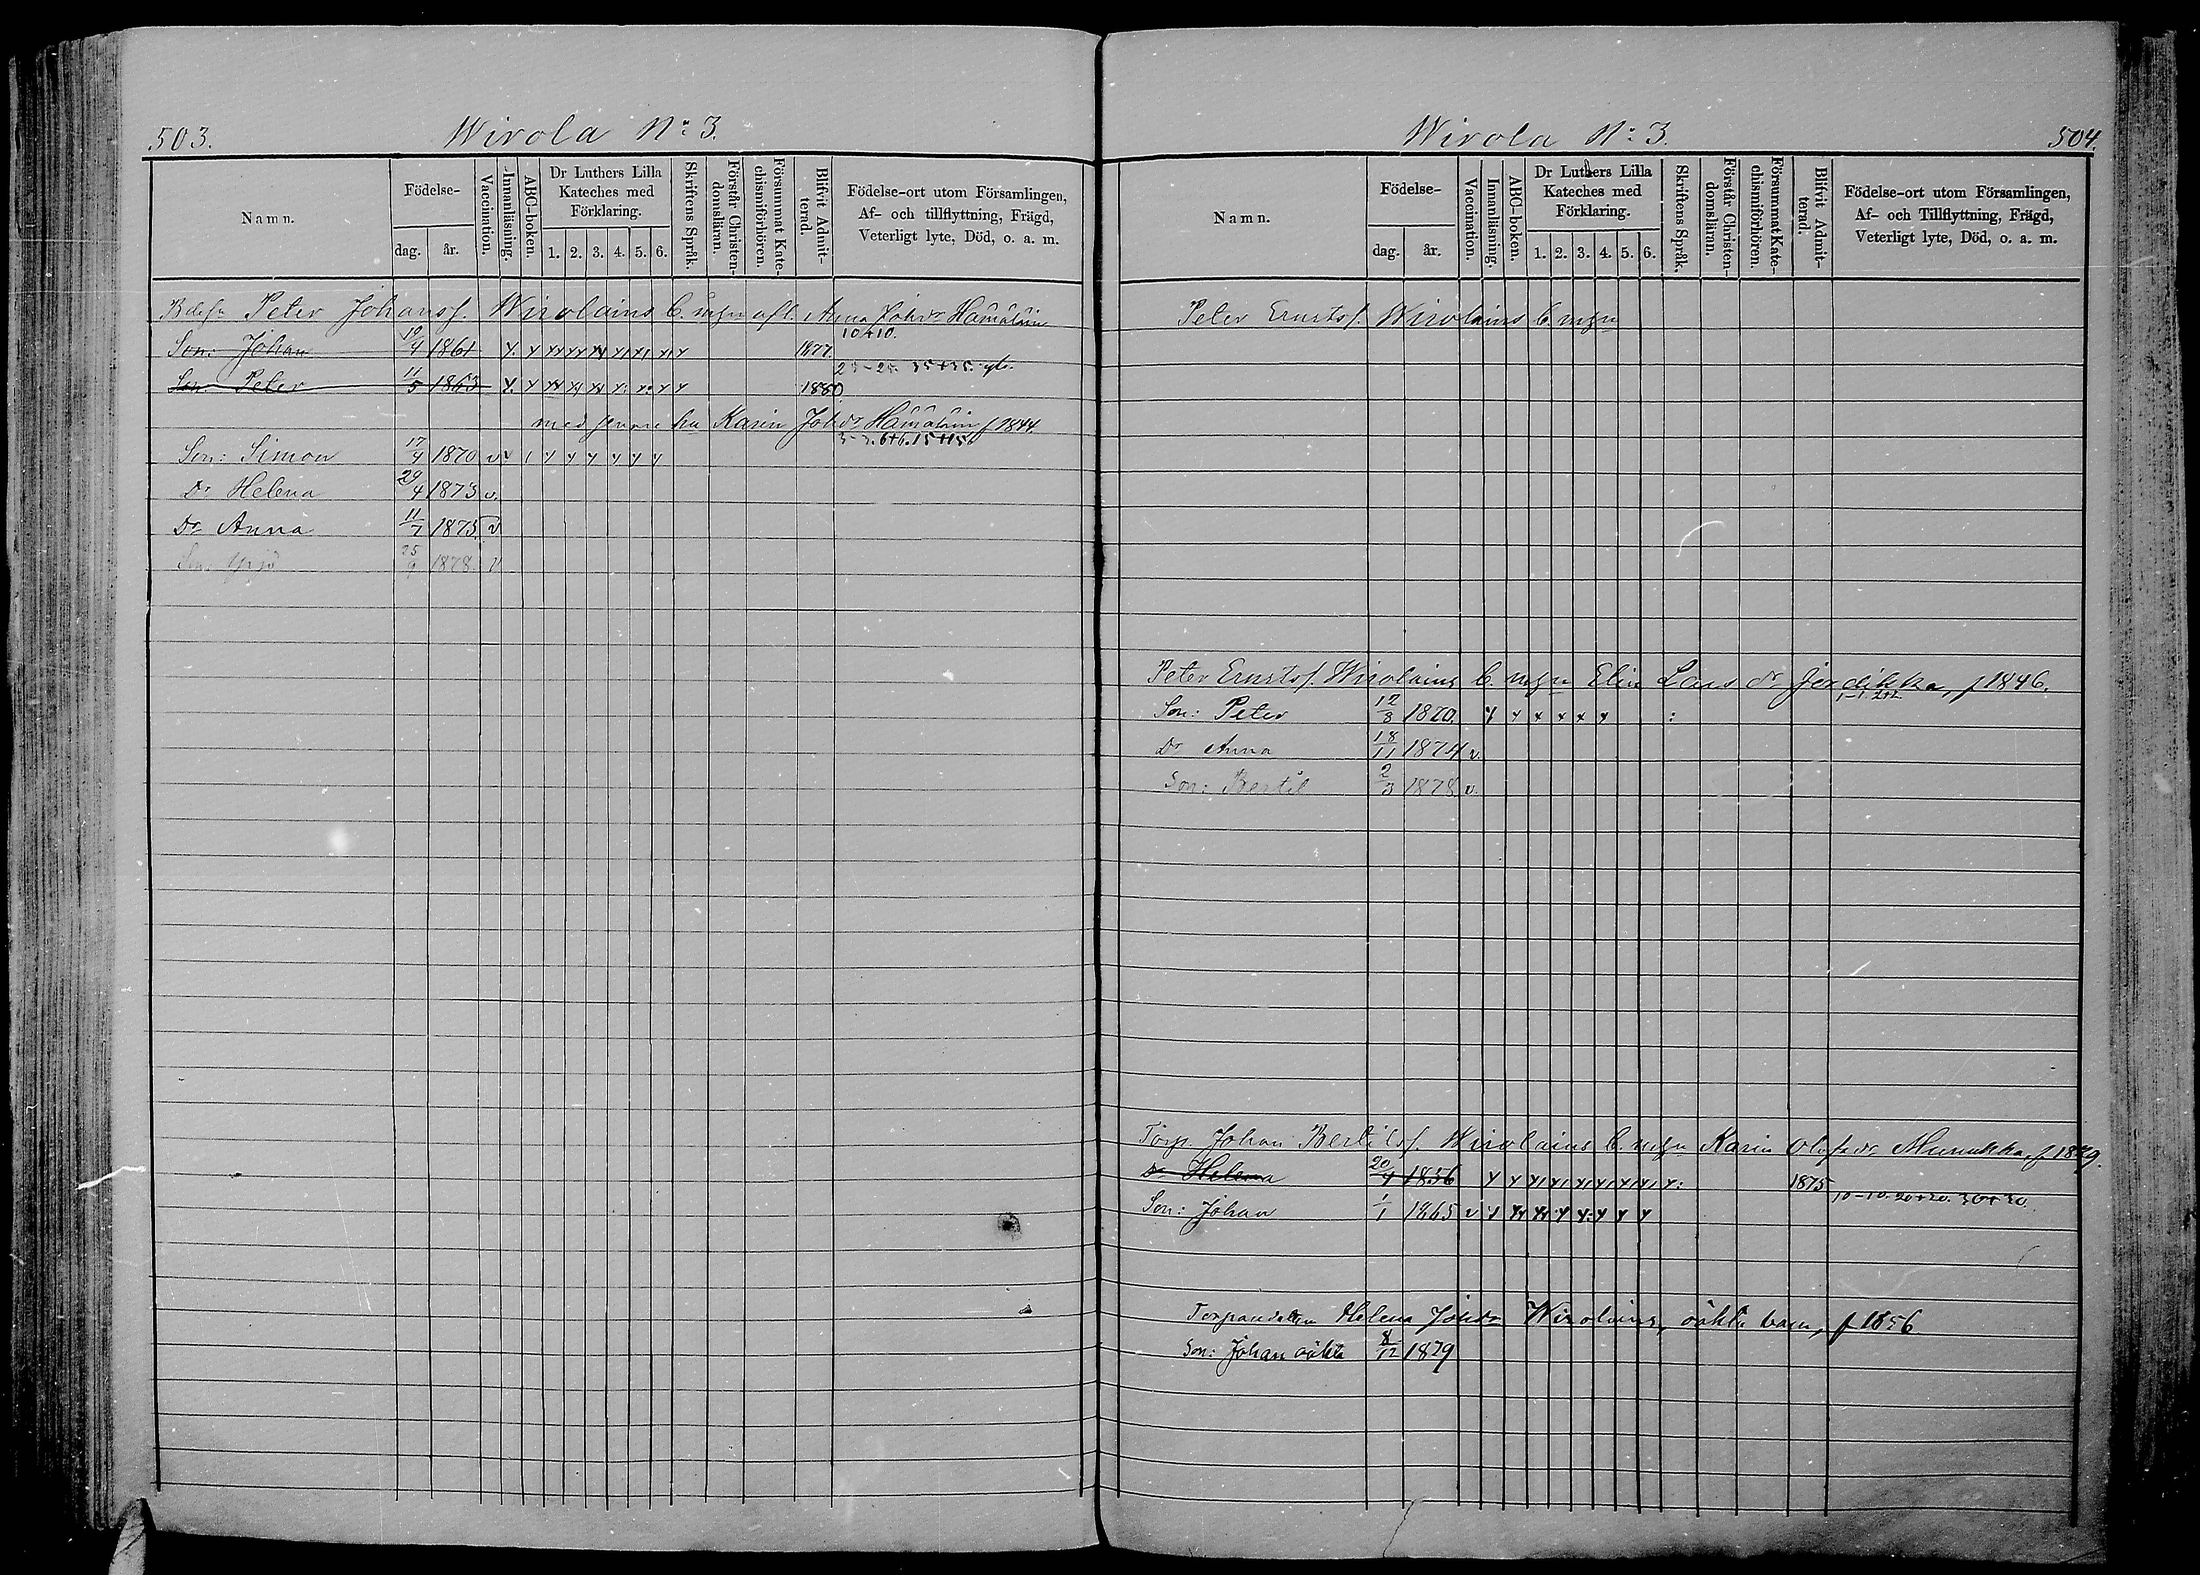 503.
Wirola N:o 3.
Namn.
Födelse-
dag.
år.
Vaccination.
Innanläsning.
ABC-boken.
Dr Luthers Lilla
Kateches med
Förklaring.
1. 2. 3. 4. 5. 6.
Skriftens Språk.
Förstår Christen-
domsläran.
Försummat Kate-
chismiförhören.
Blifvit Admit-
terad.
Födelse-ort utom Församlingen,
Af- och tillflyttning, Frägd,
Veterligt lyte, Död, o. a. m.
Peter Johansf. Wirolains b. m afl. Anna Johdr Hämäläin
10+10.
Son: Johan 19/4 1861 1877.
Son Peter 11/5 1863 1880
med senare hu Karin Johdr Hämäläin f 1844.
Son: Simon 17/4 1870 v
Dr Helena 29/4 1873 v.
Dr Anna 11/7 1875 v
Son Yrjö 25/9 1878 v
Wirola N:o 3.
504.
Namn.
Födelse-
dag.
år.
Vaccination.
Innanläsning.
ABC-boken.
Dr Luthers Lilla
Kateches med
Förklaring.
1. 2. 3. 4. 5. 6.
Skriftens Språk.
Förstår Christen-
domsläran.
Försummat Kate-
chismiförhören.
Blifvit Admit-
terad.
Födelse-ort utom Församlingen,
Af- och Tillflyttning, Frägd,
Veterligt lyte, Död, o. a. m.
Peter Ernstsf. Wirolains b mgn
Peter Ernstsf. Wirolains b. mgn Elin Lars dr f 1846.
Son: Peter 12/8 1870.
Dr Anna 18/11 1874 v.
Son: Bertil 2/3 1878 v.
Torp. Johan Bertilsf. Wirolains b. mgn Karin Olofsdr Munukka, f 1829.
Dr Helena 20/4 1856 1875
10-10. 20+20. 30+30.
Son: Johan 1/1 1865 v
Helena Johdr Wirolains, oäkta barn, f 1856
Son: Johan oäkta 8/12 1879